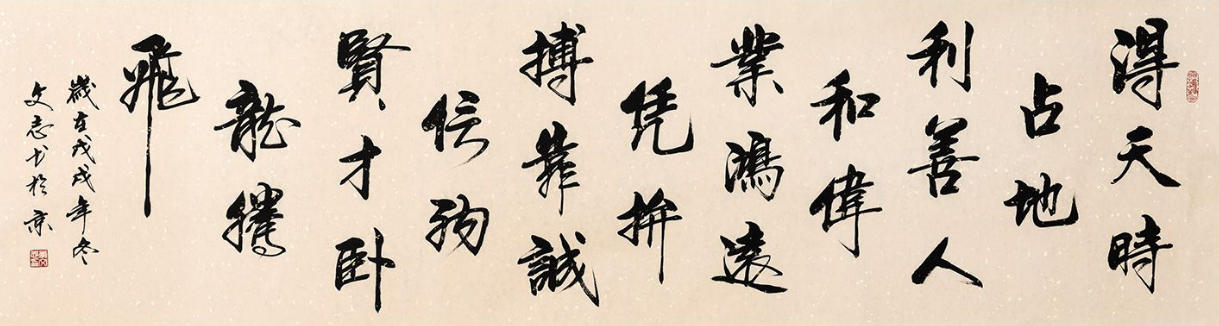 得天時
占地
利善人
和偉
業鴻遠
凭拚
搏靠誠
信
賢才卧
龍騰
飛
歲在戊戌年冬
文志书於京